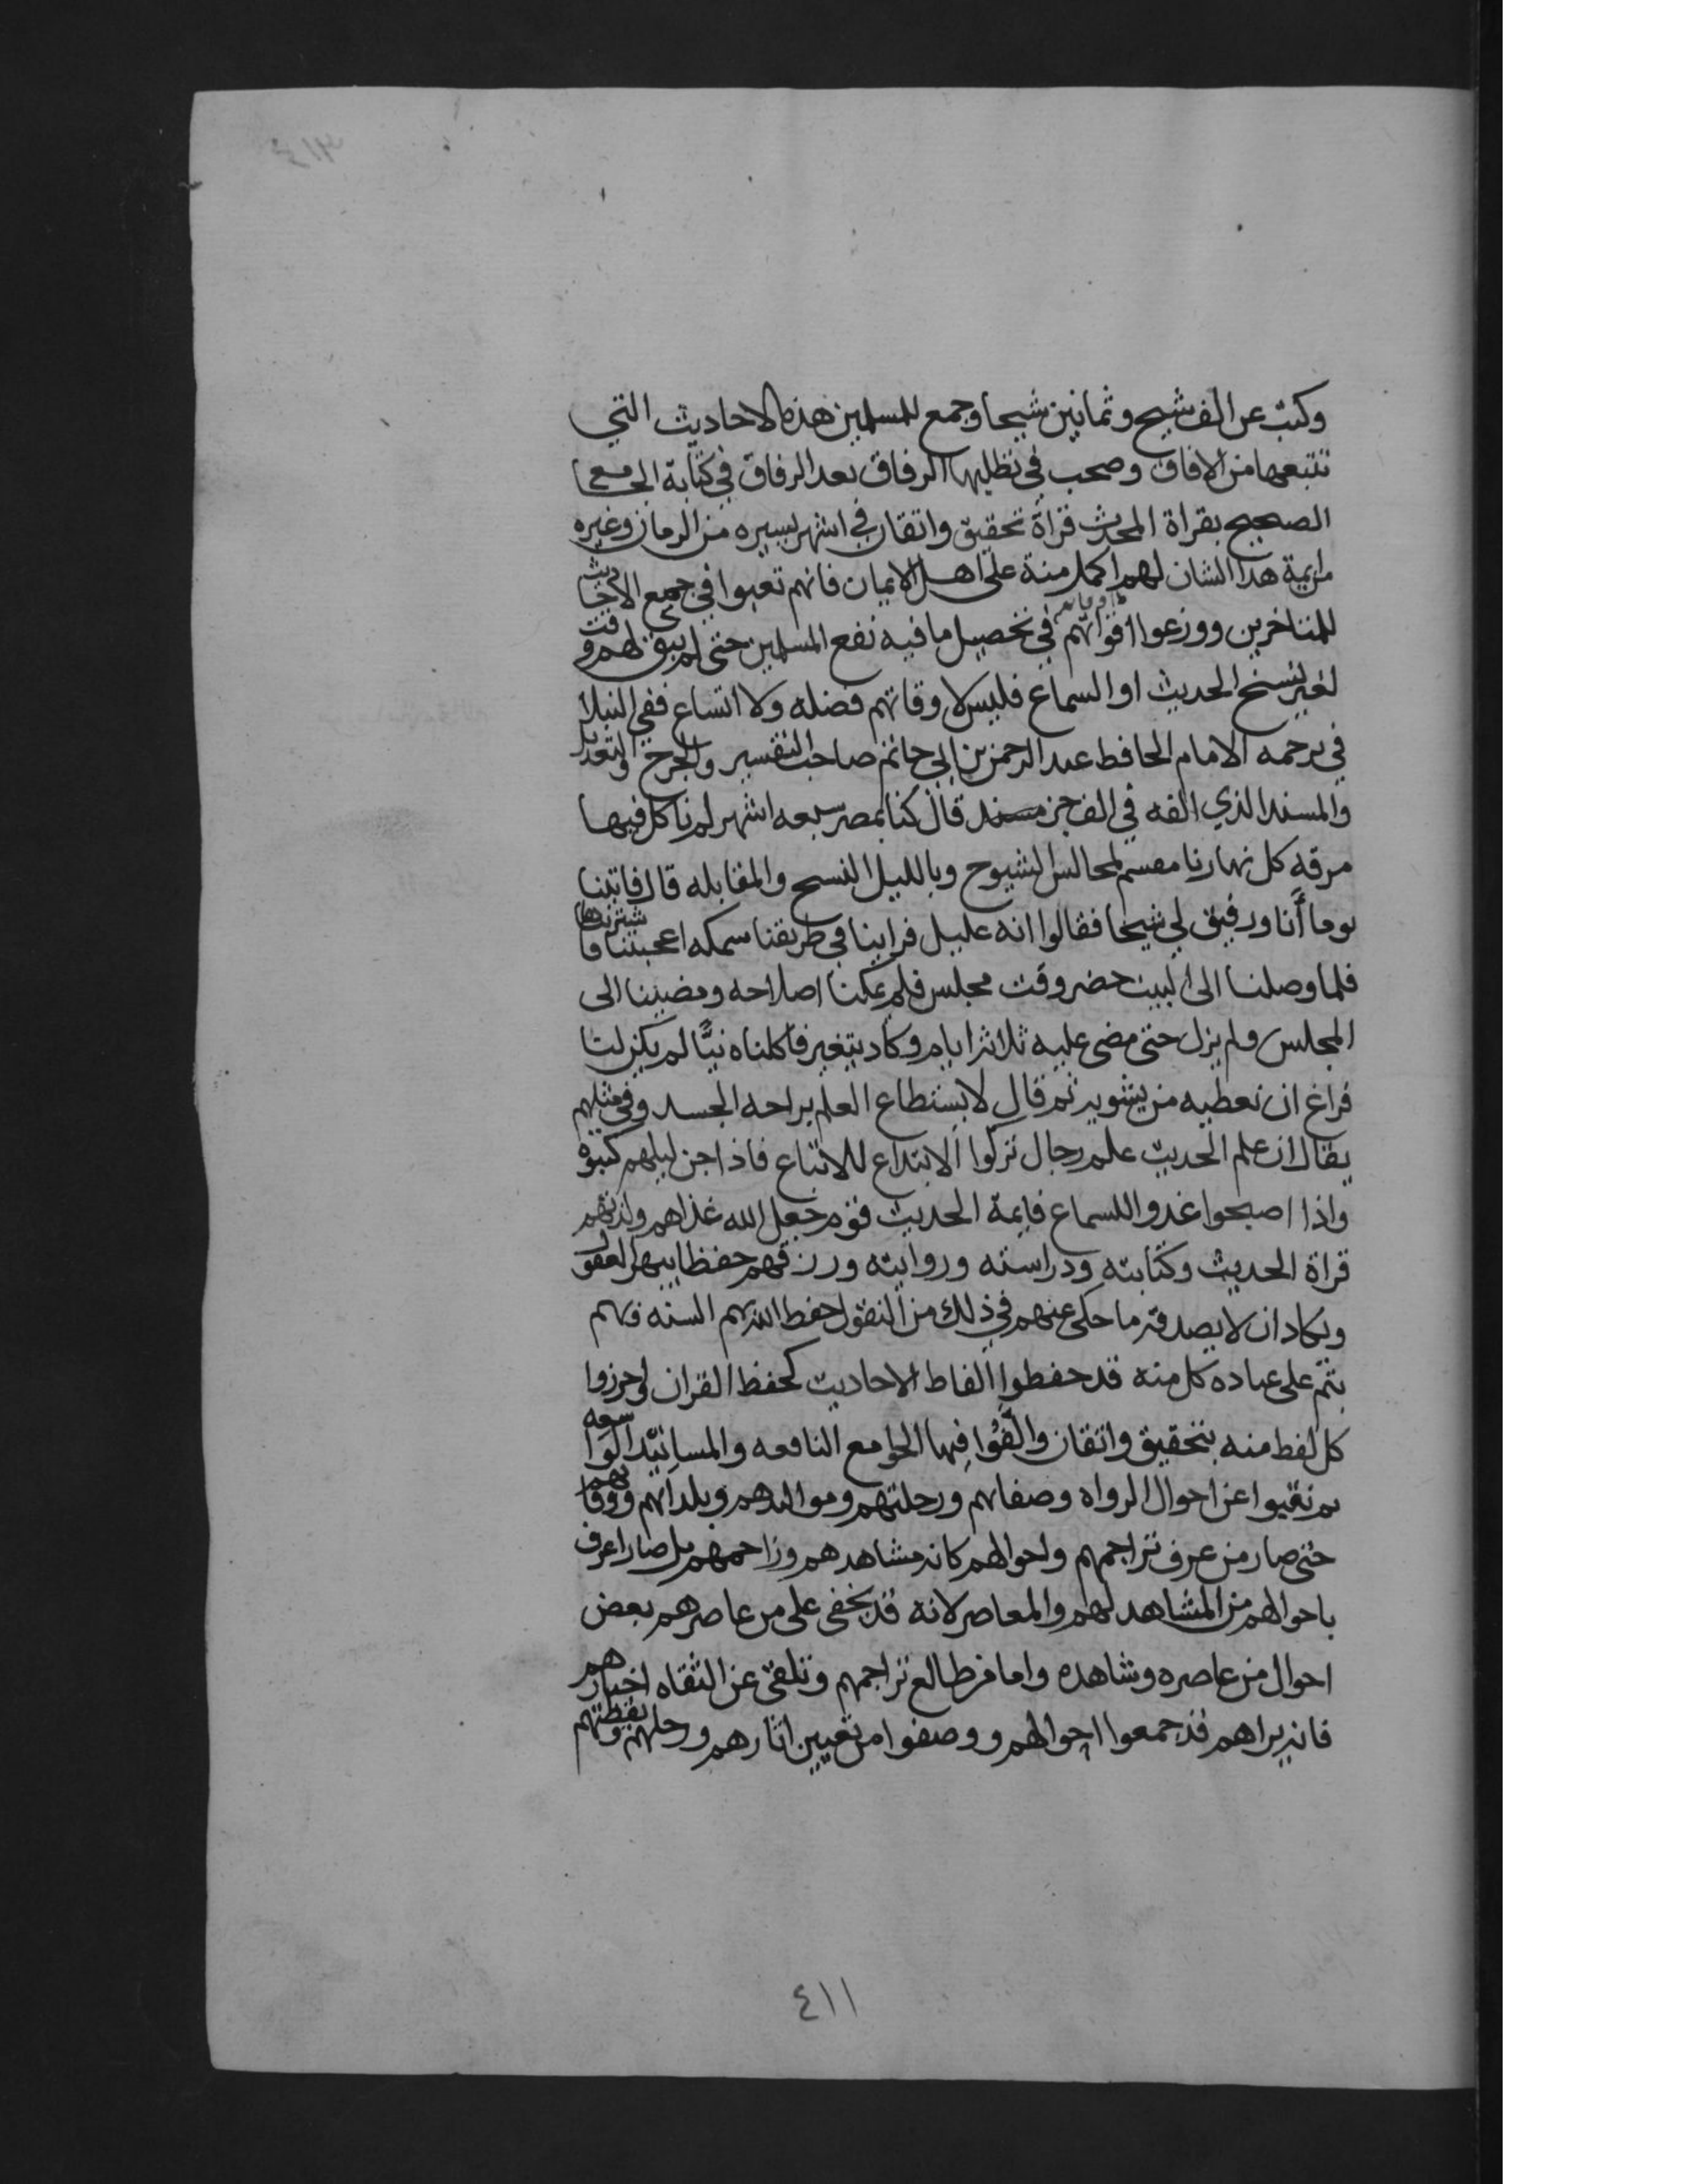 وكتب عن الف شيخ وثمانين شيخا وجمع للمسلمين هذه الاحاديث التي
تتبعها من الافاق وصحب في تطلبها الرفاق بعد الرفاق في كتابة الجامع
الصحيح بقراة المحدث قراة تحقيق واتقان في اشهر يسيره من الزمان وغيره
من ايمة هدا الشان لهم اكمل منة على اهل الايمان فانهم تعبوا في جمع الاحاديث
للمتاخرين ووزعوا اقواتهم في تحصيل ما فيه نفع المسلمين حتى لم يبق لهم وقت
لغير نسخ الحديث او السماع فليس لاوقاتهم فضله ولا اتساع ففي النبلا
في ترجمه الامام الحافط عبد الرحمن بن ابي حاتم صاحب التفسير والجرح والتعديل
والمسند الذي الفه في الف جز قال كنا بمصر سبعه اشهر لم ناكل فيها
مرقه كل نهارنا مقسم لمجالس الشيوخ وبالليل النسخ والمقابله قال فاتينا
يوما أنا ورفيق لي شيخا فقالوا انه عليل فراينا في طريقنا سمكه اعجبتنا فاشتريناها
فلما وصلنا الى البيت حضر وقت مجلس فلم يمكنا اصلاحه ومضينا الى
المجلس ولم يزل حتى مضى عليه ثلاثة ايام وكاد يتغير فاكلناه نيًّا لم يكن لنا
فراغ ان نعطيه من يشويه ثم قال لا يستطاع العلم براحه الجسد وفي مثلهم
يقال ان علم الحديث علم رجال تركوا الابتداع للاتباع فاذا جن ليلهم كتبوه
واذا اصبحوا غدوا للسماع فايمة الحديث قوم جعل الله غذاهم ولذتهم
قراة الحديث وكتابته ودراسته وروايته ورزقهم حفظا يبهر العقول
ويكاد ان لا يصدق ما حكى عنهم في ذلك من النقول حفط الله بهم السنه فهم
يتم على عباده كل منه قد حفطوا الفاط الاحاديث كحفظ القران واحرزوا
كل لفط منه بتحقيق واتقان والَّفُوا فيها الجوامع النافعه والمسانيد الواسعه
ثم نقبوا عن احوال الرواه وصفاتهم ورحلتهم ومواليدهم وبلدانهم ووفاتهم
حتى صار من عرف تراجمهم واحوالهم كانه مشاهدهم وزاحمهم بل صار اعرف
باحوالهم من المشاهد لهم والمعاصر لانه قد يخفى على من عاصرهم بعض
احوال من عاصره وشاهده واما من طالع تراجمهم وتلقى عن الثقاه اخبارهم
فانه يراهم قد جمعوا احوالهم ووصفوا من تعيين اثارهم ورحلتهم ويقظتهم
٤١١